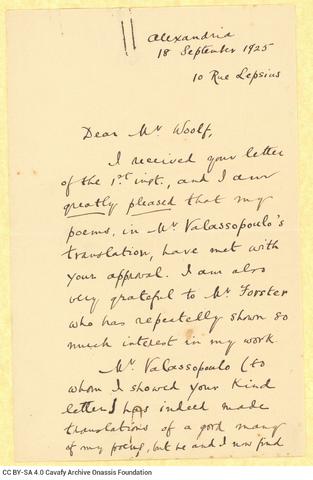 Alexandria
18 September 1925
10 Rue Lepsius
Dear Mr Woolf,
I received your letter
of the 1st inst., and I am
greatly pleased that my
poems, in Mr Valassopoulo's
translation, have met with
your approval. I am also
very grateful to Mr Forster
who has repeatedly shown so
much interest in my work.
Mr Valassopoulo (to
whom I showed your kind
letter) has indeed made
translations of a good many
of my poems, but he and I now find
CC BY-SA 4.0 Cavafy Archive Onassis Foundation